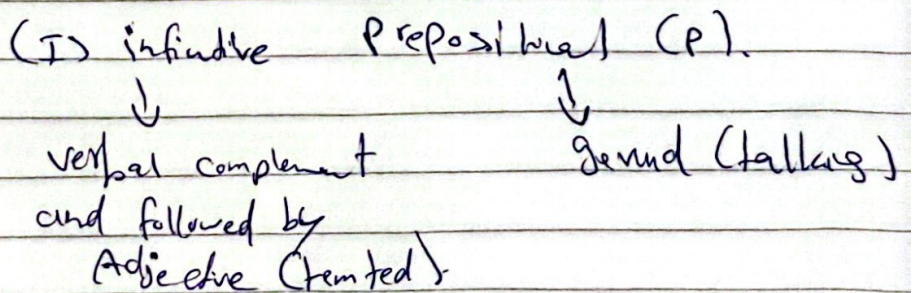 (I) infinitive Prepositional (P).
↓ ↓
verbal complement gerund (talking)
and followed by
Adjective (temted).